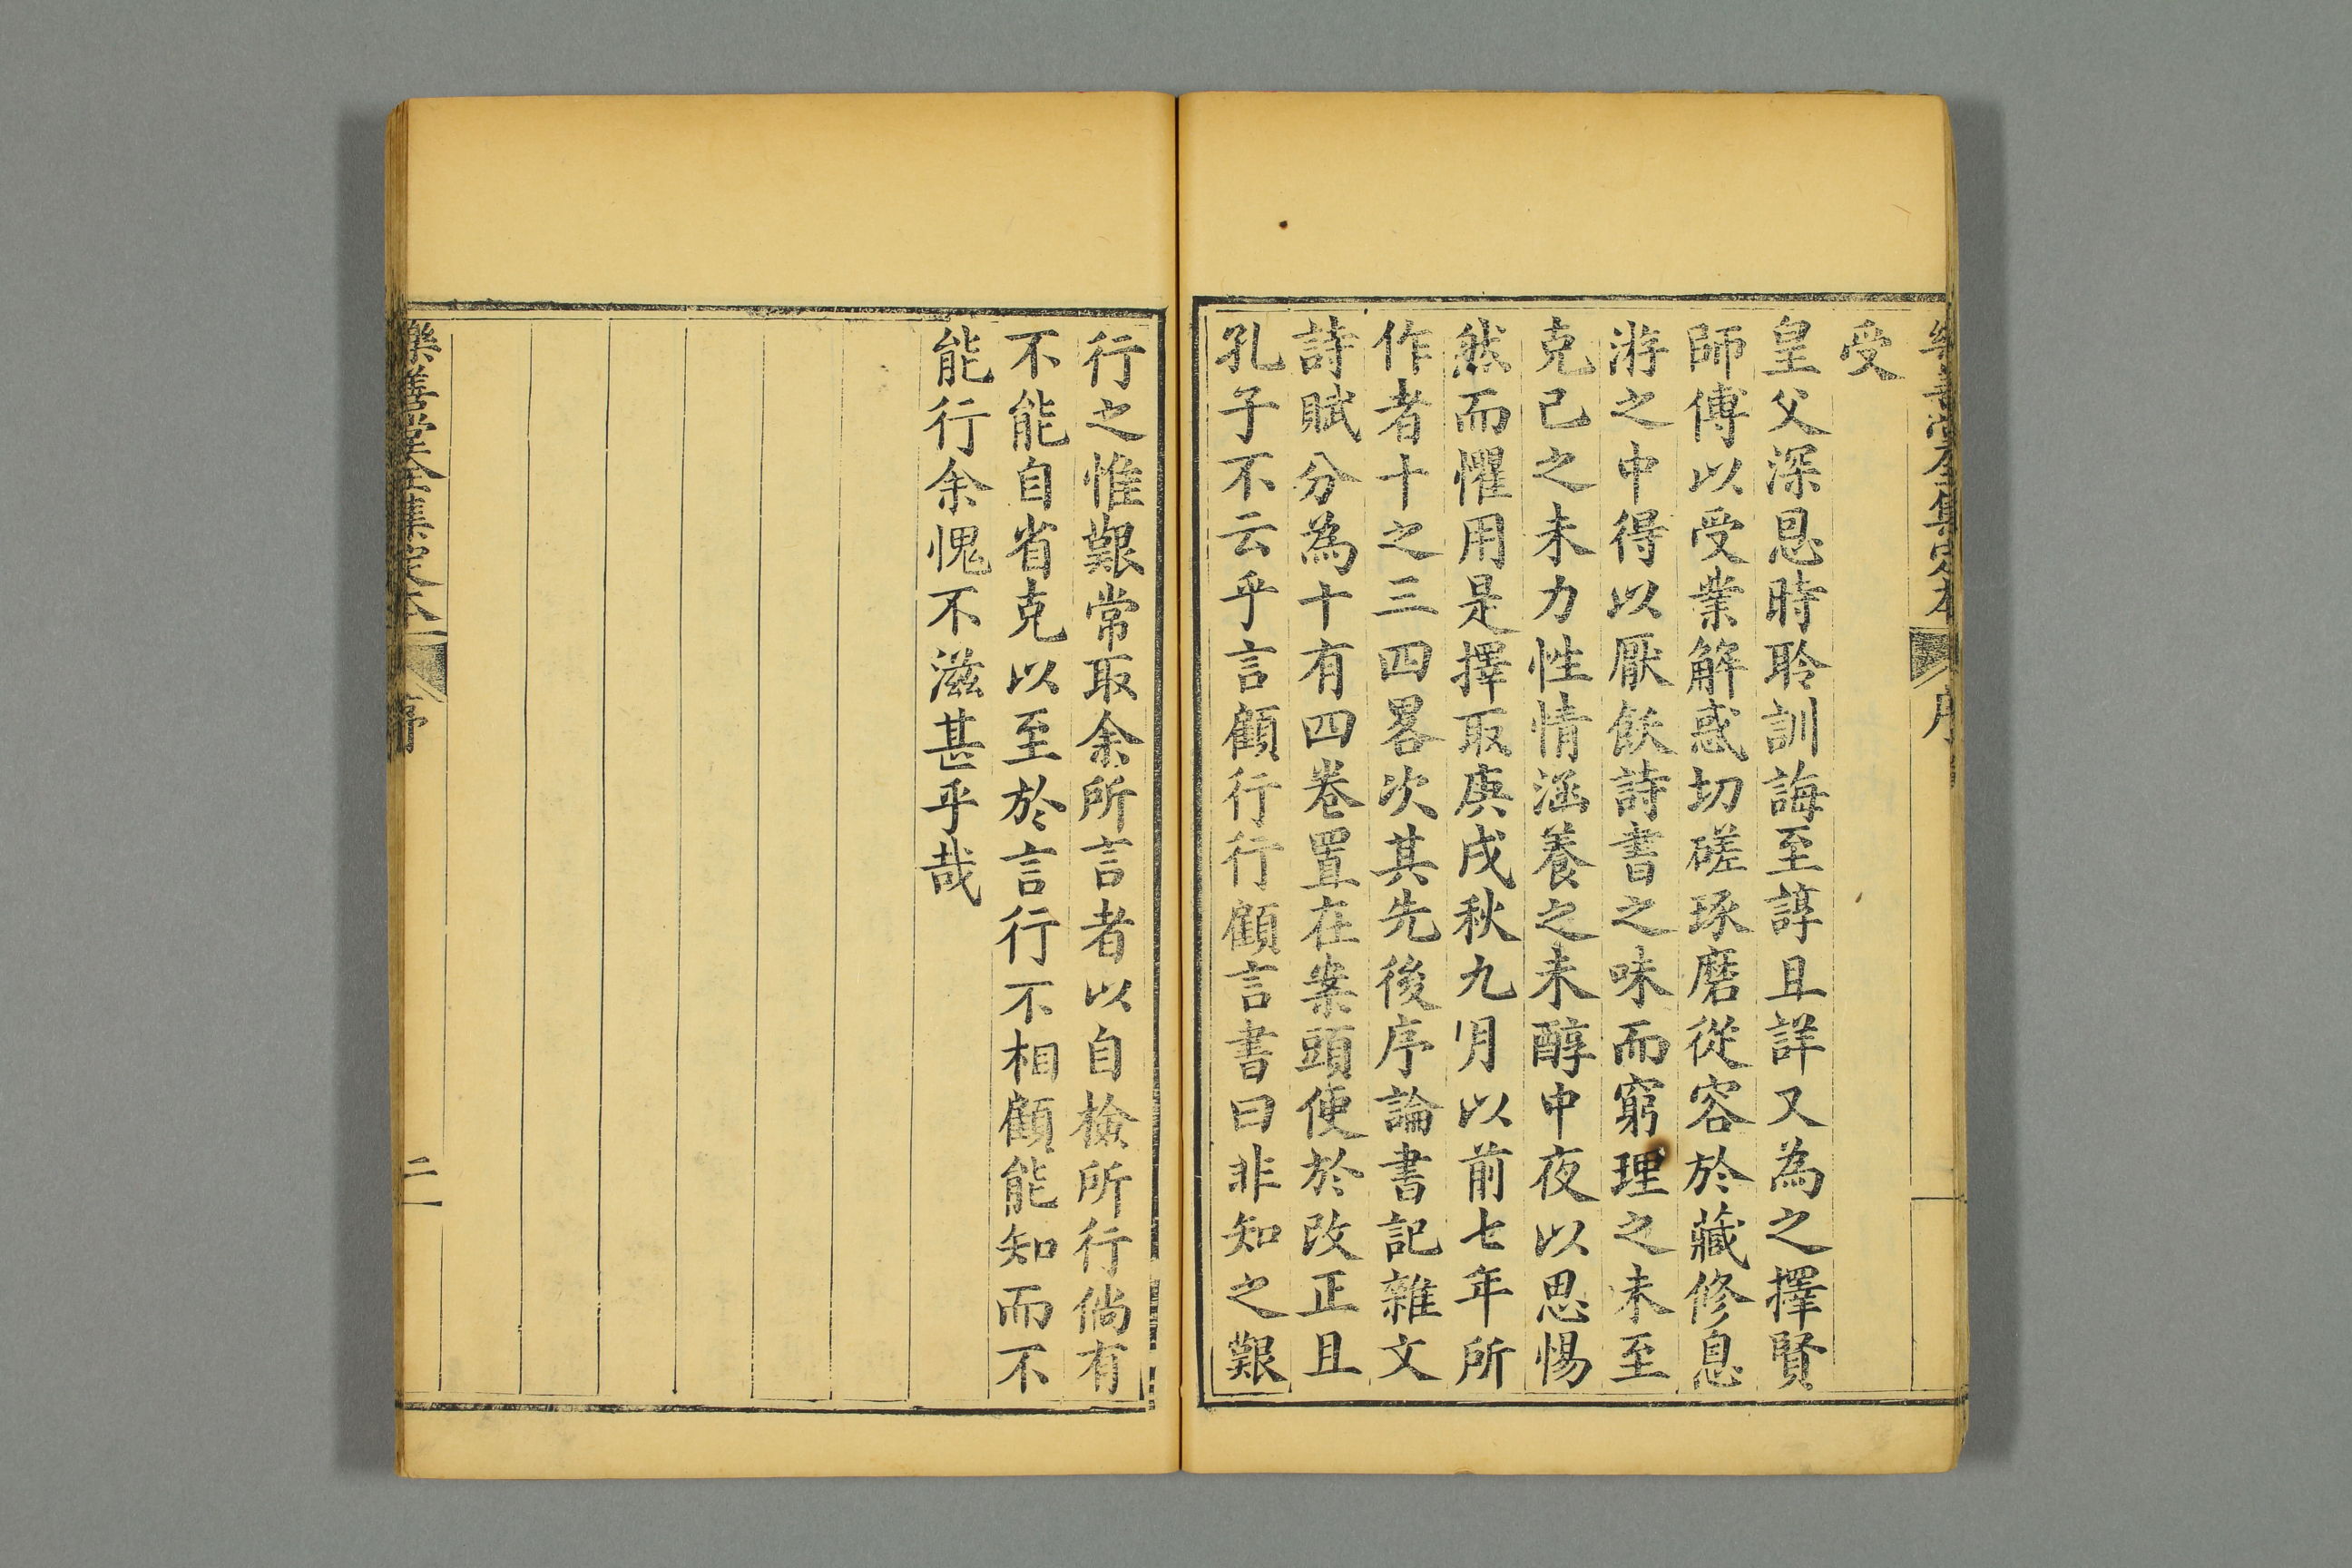 受
皇父深恩時聆訓誨至諄且詳又為之擇賢
師傅以受業解惑切磋琢磨從容於藏修息
游之中得以厭飫詩書之味而窮理之未至
克己之未力性情涵養之未醇中夜以思惕
然而懼用是擇取庚戌秋九月以前七年所
作者十之三四畧次其先後序論書記雜文
詩賦分為十有四卷置在案頭使於改正且
孔子不云乎言顧行行顧言書曰非知之艱
行之惟艱常取余所言者以自檢所行倘有
不能自省克以至於言行不相顧能知而不
能行余愧不滋甚乎哉
樂善堂全集定本
序
二